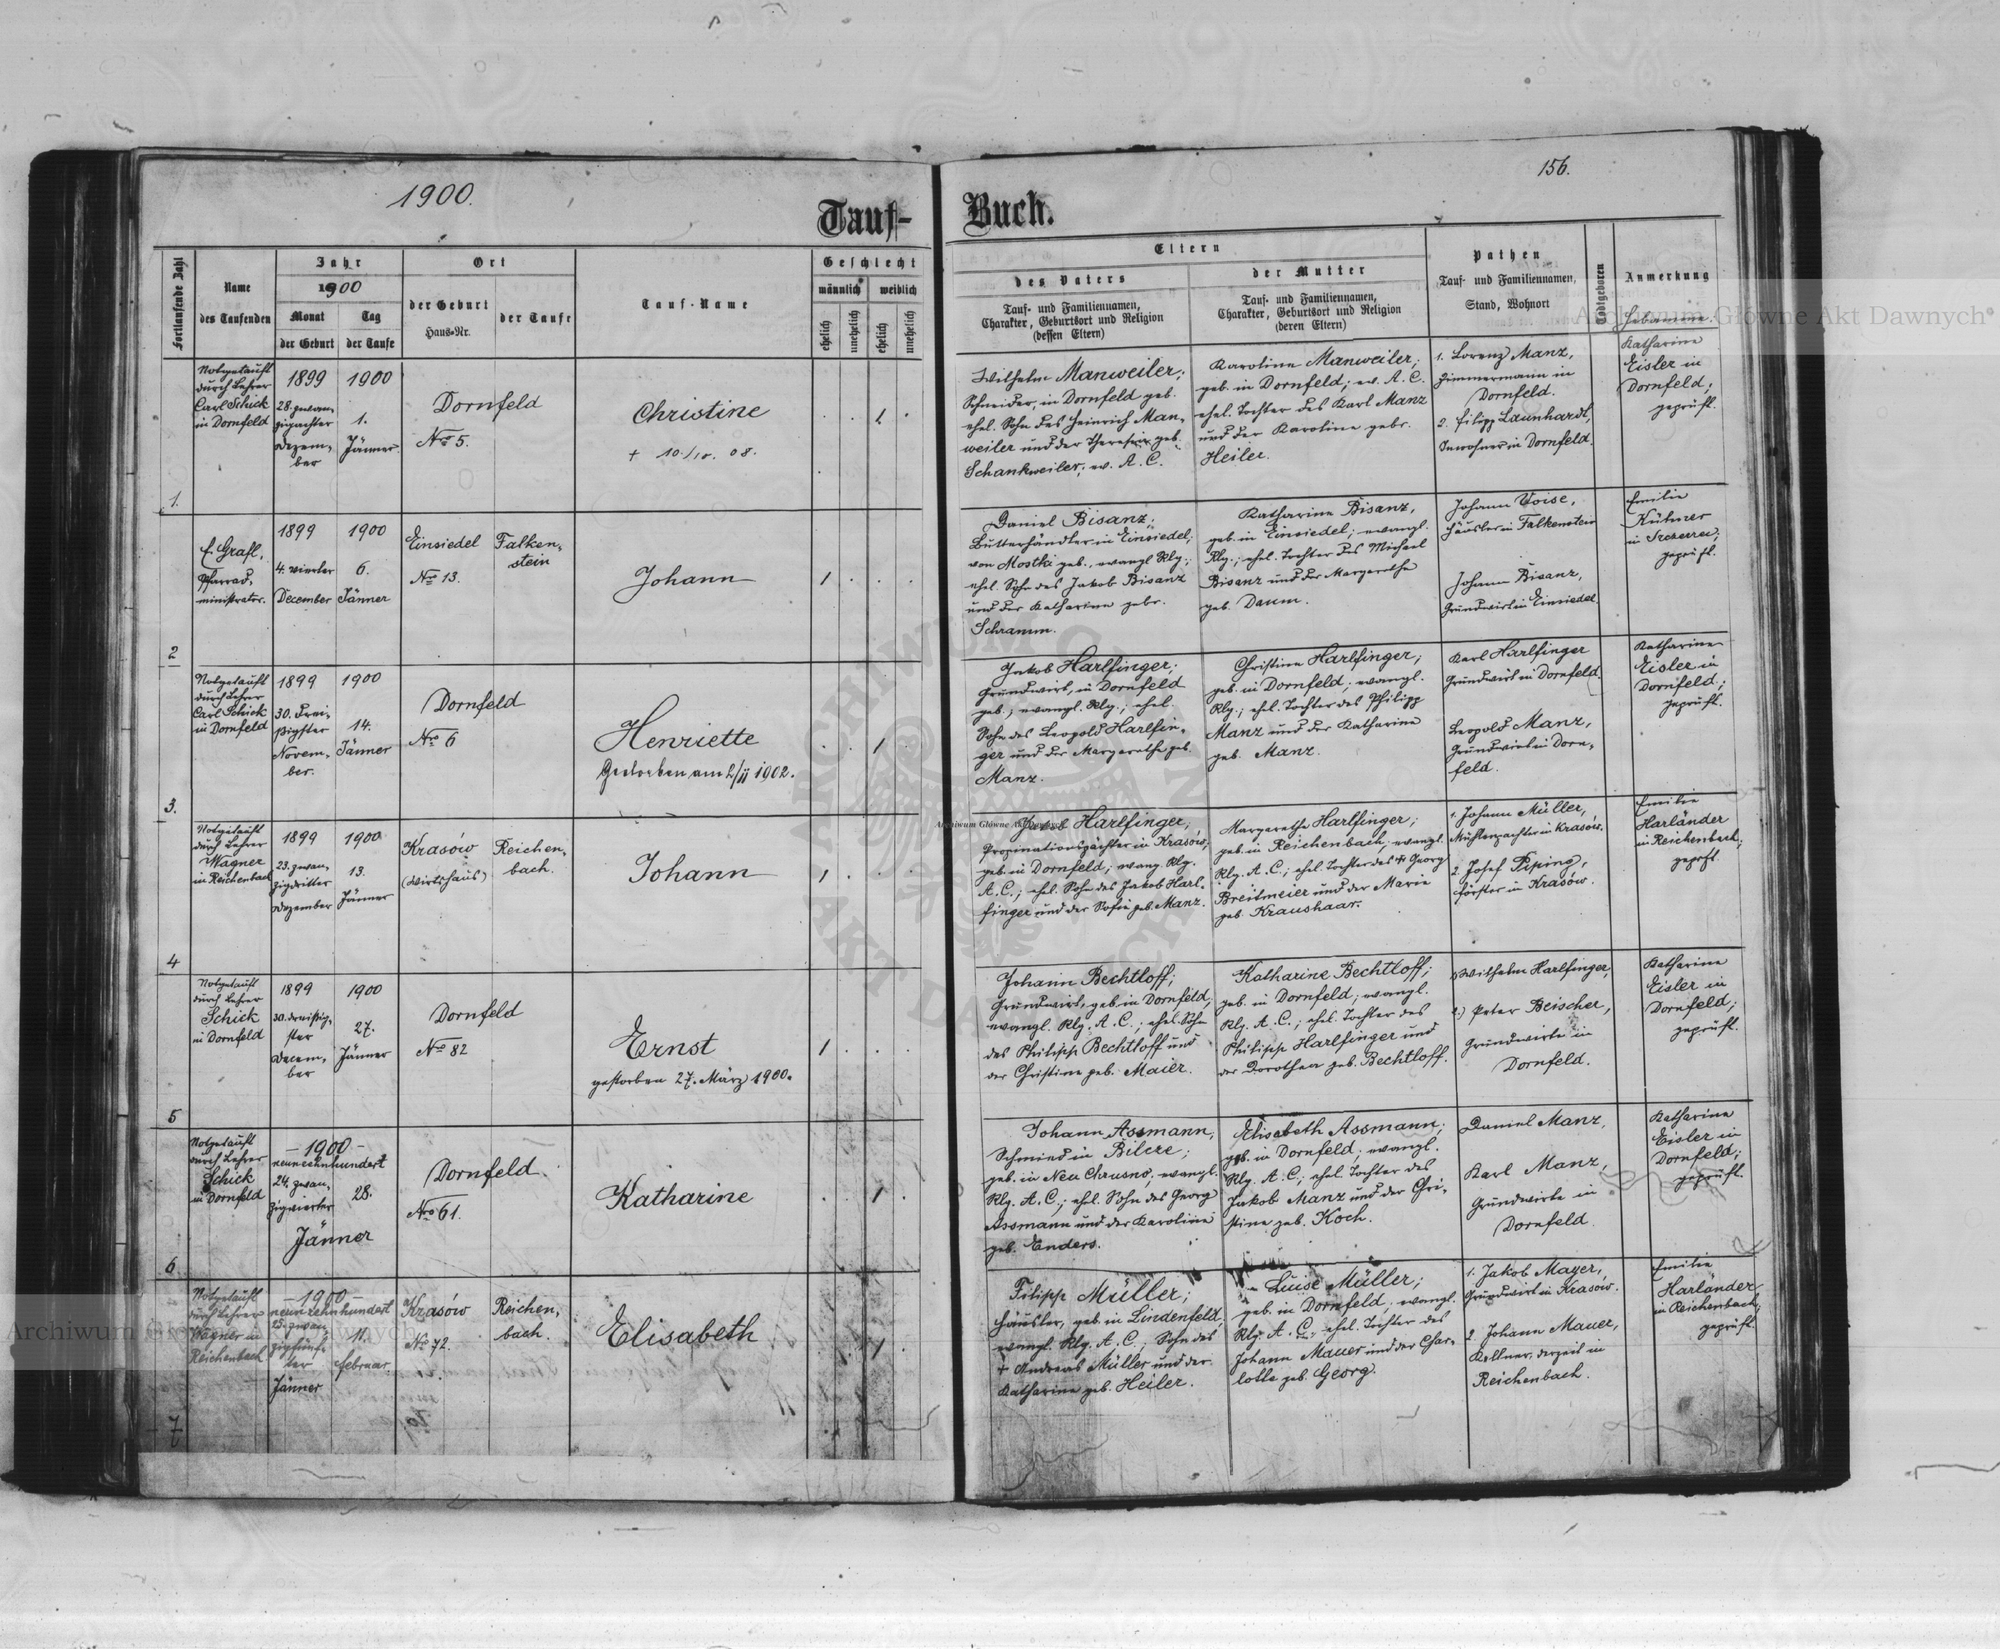 1900.
156.
Tauf-
Buch.
Fortlaufende Zahl
Name
des Taufenden
Jahr
1900
Monat
der Geburt
Tag
der Taufe
Ort
der Geburt
Haus-Nr.
der Taufe
Tauf-Name
Geschlecht
männlich
weiblich
ehelich
unehelich
ehelich
unehelich
Eltern
des Vaters
Tauf- und Familiennamen,
Charakter, Geburtsort und Religion
(dessen Eltern)
der Mutter
Tauf- und Familiennamen,
Charakter, Geburtsort und Religion
(deren Eltern)
Pathen
Tauf- und Familiennamen,
Stand, Wohnort
Todtgeboren
Anmerkung
Hebamme
1.
Notgetauft
durch Lehrer
Carl Schick
in Dornfeld
1899
28. zwan-
zigachter
Dezem-
ber
1900
1.
Jänner
Dornfeld
Nro 5.
Christine
+ 10./IV. 08.
1
Wilhelm Manweiler;
Schneider, in Dornfeld geb.
ehel. Sohn des Heinrich Man-
weiler und der Theresia geb.
Schankweiler; ev. A. C.
Karoline Manweiler;
geb. in Dornfeld; ev. A. C.
ehel. Tochter des Karl Manz
und der Karoline gebr.
Heiler.
1. Lorenz Manz,
Zimmermann in
Dornfeld.
2. Filipp Launhardt,
Inwohner in Dornfeld.
Katharina
Eisler in
Dornfeld;
geprüft.
2
E. Grafl,
Pfarrad-
ministrator.
1899
4. vierter
December
1900
6.
Jänner
Einsiedel
Nro 13.
Falken-
stein
Johann
1
Daniel Bisanz;
Butterhändler in Einsiedel;
von Mostki geb., evangl Rlg.;
ehel. Sohn des Jakob Bisanz
und der Katharina gebr.
Schramm.
Katharina Bisanz,
geb. in Einsiedel; evangl.
Rlg.; ehel. Tochter des Michael
Bisanz und der Margarethe
geb. Daum.
Johann Voise,
Häusler in Falkenstein
Johann Bisanz,
Grundwirt in Einsiedel.
Emilie
Kühner
in
geprüft.
3.
Notgetauft
durch Lehrer
Carl Schick
in Dornfeld
1899
30. Drei-
ßigster
Novem-
ber.
1900
14.
Jänner
Dornfeld
Nro 6
Henriette
Gestorben am 2/II 1902.
1
Jakob Harlfinger;
Grundwirt, in Dornfeld
geb.; evangl. Rlg.; ehel.
Sohn des Leopold Harlfin-
ger und der Margarethe geb.
Manz.
Christine Harlfinger;
geb. in Dornfeld; evangl.
Rlg.; ehel. Tochter des Philipp
Manz und der Katharina
geb. Manz.
Karl Harlfinger
Grundwirt in Dornfeld.
Leopold Manz,
Grundwirt in Dorn-
feld.
Katharina
Eisler in
Dornfeld;
geprüft.
4
Notgetauft
durch Lehrer
Wagner
in Reichenbach
1899
23. zwan-
zigdritter
Dezember
1900
13.
Jänner
Krasów
(Wirtshaus)
Reichen-
bach.
Johann
1
Jakob Harlfinger,
Propinationspächter in Krasów,
geb. in Dornfeld; evang. Rlg.
A. C.; ehel. Sohn des Jakob Harl-
finger und der Sofie geb. Manz.
Margarethe Harlfinger;
geb. in Reichenbach; evangl.
Rlg. A. C.; ehel. Tochter des + Georg
Breitmeier und der Marie
geb. Kraushaar.
1. Johann Müller,
Mühlenpachter in Krasów.
2. Josef Piping,
Förster in Krasów.
Emilie
Harländer
in Reichenbach;
geprft.
5
Notgetauft
durch Lehrer
Schick
in Dornfeld
1899
30. dreißig-
ster
Decem-
ber
1900
27.
Jänner
Dornfeld
Nro 82
Ernst
gestorben 27. März 1900.
1
Johann Bechtloff;
Grundwirt, geb. in Dornfeld,
evangl. Rlg. A. C.; ehel. Sohn
des Philipp Bechtloff und
der Christine geb. Maier.
Katharine Bechtloff;
geb. in Dornfeld; evangl.
Rlg. A. C.; ehel. Tochter des
Philipp Harlfinger und
der Dorothea geb. Bechtloff.
1) Wilhelm Harlfinger,
2.) Peter Beischer,
Grundwirte in
Dornfeld.
Katharina
Eisler in
Dornfeld;
geprüft.
6
Notgetauft
durch Lehrer
Schick
in Dornfeld
– 1900 –
neunzehnhundert
24. zwan-
zigvierter
Jänner
28.
Dornfeld
Nro 61.
Katharine
1
Johann Assmann,
Schmied in Bilcze;
geb. in Neu Chrusno, evangl.
Rlg. A. C.; ehel. Sohn des Georg
Assmann und der Karoline
geb. Enders.
Elisabeth Assmann;
geb. in Dornfeld; evangl.
Rlg. A. C.; ehel. Tochter des
Jakob Manz und der Chri-
stine geb. Koch.
Daniel Manz,
Karl Manz,
Grundwirte in
Dornfeld.
Katharina
Eisler in
Dornfeld;
geprüft.
7
Notgetauft
durch Lehrer
Wagner in
Reichenbach
– 1900 –
neunzehnhundert
25. zwan-
zigfünf-
ter
Jänner
11.
Februar.
Krasów
Nro 72.
Reichen-
bach.
Elisabeth
1
Filipp Müller;
Häusler, geb. in Lindenfeld,
evangl. Rlg. A. C.; Sohn des
+ Andreas Müller und der
Katharina geb. Heiler.
Luise Müller;
geb. in Dornfeld; evangl.
Rlg. A. C., ehel. Tochter des
Johann Mauer und der Char-
lotte geb. Georg.
1. Jakob Mayer,
Grundwirt in Krasów.
2. Johann Mauer,
Kellner, derzeit in
Reichenbach.
Emilie
Harländer
in Reichenbach,
geprüft.
Archiwum Główne Akt Dawnych
Archiwum Główne Akt Dawnych
Archiwum Główne Akt Dawnych